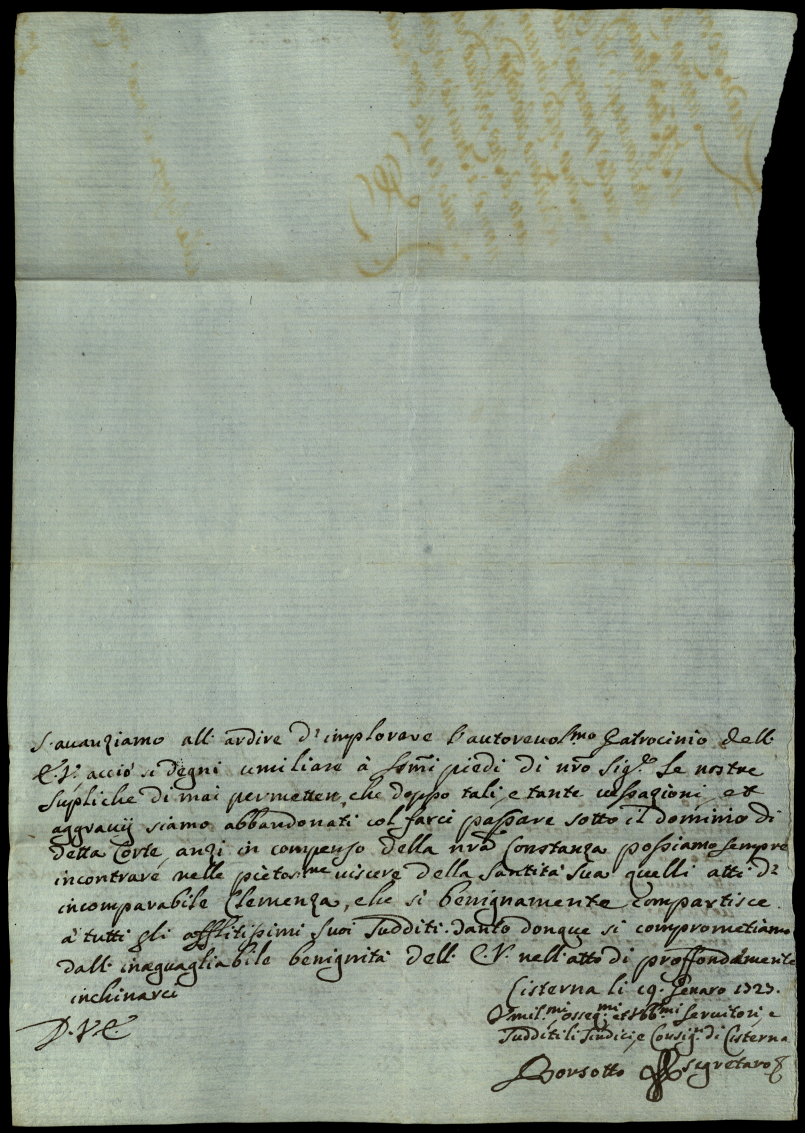 S'avanziamo all'ardire d'implorare l'autorevol.mo Patrocinio dell'
E.V. acciò si degni umiliare à Ssmi piedi di nro Sig.re le nostre
supliche di mai permetter, che doppo tali, e tante vessagioni, et
aggravij siamo abbandonati col farci passare sotto il dominio di
detta Corte, anzi in compenso della nra Constanza possiamo sempre
incontrare nelle pietos.me viscere della Santità Sua quelli atti d'
incomparabile Clemenza, che si benignamente compartisce
à tutti gli afflitissimi suoi sudditi. tanto donque si comprometiamo
dall'inaeguagliabile benignità dell'E.V. nell'atto di proffondamente
inchinarci
Cisterna li 19. Genaro 1723.
D.V.E.
Vmil.mi osseq.mi et obb.mi servitori, e
sudditi li sindici, e Consig.ri di Cisterna
Borsotto segretaro